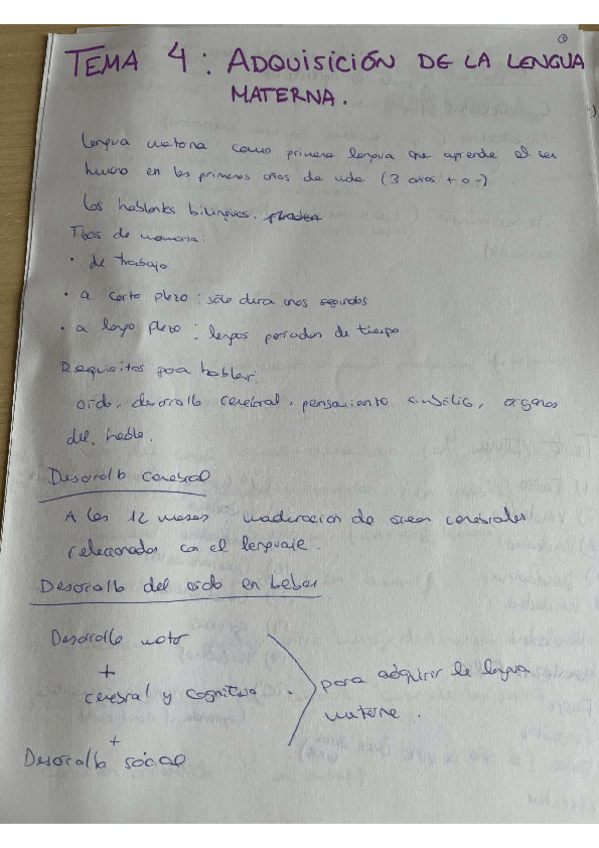 TEMA 4: ADQUISICIÓN DE LA LENGUA
MATERNA.
Lengua materna como primera lengua que aprende el ser
humano en los primeros años de vida (3 años + o -)
Los hablantes bilingües.
Tipos de memoria:
• de trabajo
• a corto plazo: sólo dura unos segundos
• a largo plazo: largos periodos de tiempo
Requisitos para hablar:
oído, desarrollo cerebral, pensamiento simbólico, órganos
del habla.
Desarrollo cerebral
A los 12 meses: maduración de áreas cerebrales
relacionadas con el lenguaje.
Desarrollo del oído en bebés
Desarrollo motor
+
cerebral y cognitivo
para adquirir la lengua
materna.
+
Desarrollo social